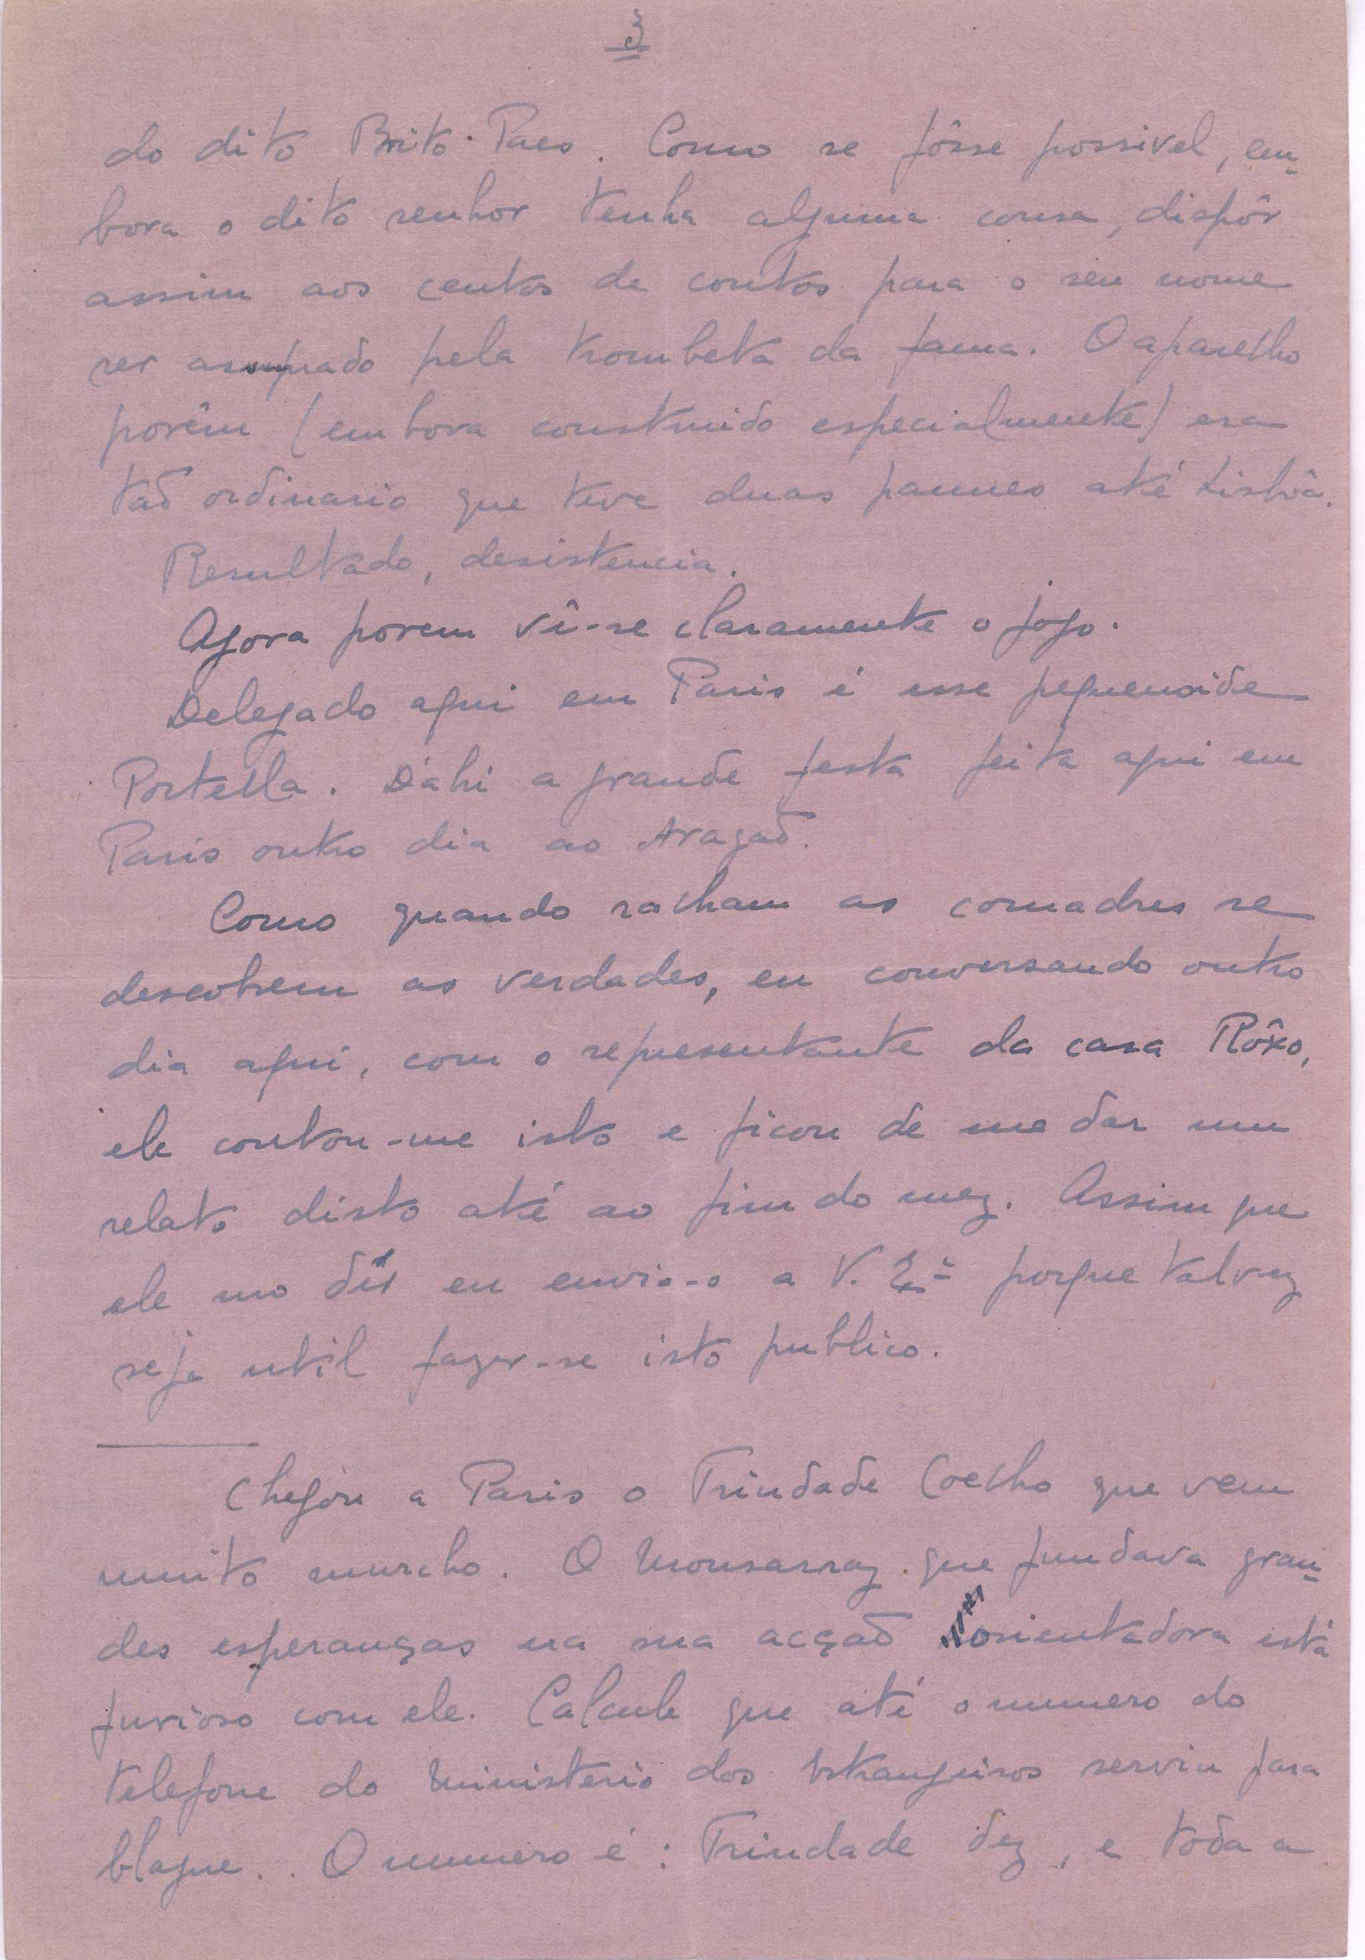 3
do dito Brito Paes. Como se fôsse possivel, em-
bora o dito senhor tenha alguma cousa, dispôr
assim aos centos de contos para o seu nome
ser assoprado pela trombeta da fama. O aparelho
porêm (embora construido especialmente) era
taõ ordinario que teve duas pannes até Lisbôa.
Resultado, desistencia.
Agora porem vê-se claramente o jogo.
Delegado aqui em Paris é esse pequenoide
Portella. Dáhi a grande festa feita aqui em
Paris outro dia ao Aragaõ.
Como quando racham as comadres se
descobrem as verdades, eu conversando outro
dia aqui, com o representante da casa Rôxo,
ele contou-me isto e ficou de me dar um
relato disto até ao fim do mez. Assim que
ele mo dê eu envio-o a V. Exª porque talvez
seja util fazer-se isto publico.
Chegou a Paris o Trindade Coelho que vem
muito murcho. O Monsarraz que fundava gran-
des esperanças na sua acçaõ orientadora está
furioso com ele. Calcule que até o numero do
telefone do Ministerio dos Estrangeiros serviu para
blague. O numero é: Trindade dez, e toda a